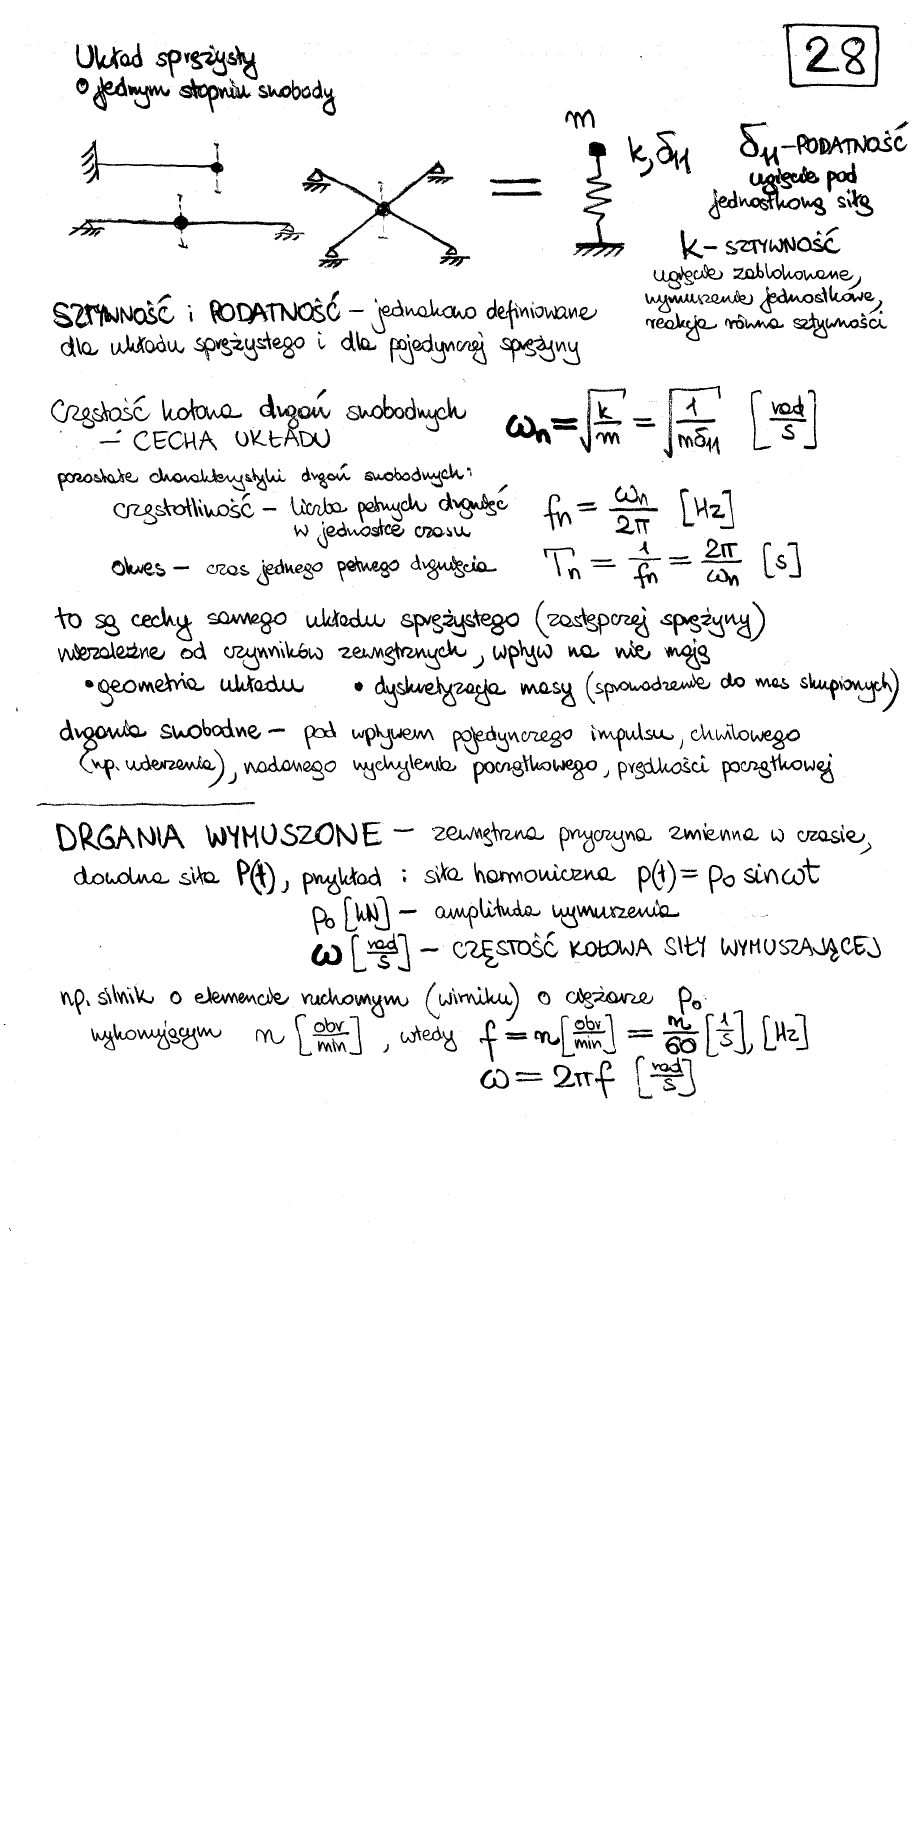 28
Układ sprężysty
o jednym stopniu swobody
m
k, δ₁₁
δ₁₁ - PODATNOŚĆ
ugięcie pod
jednostkową siłą
k - SZTYWNOŚĆ
ugięcie zablokowane,
wymuszenie jednostkowe,
reakcja równa sztywności
SZTYWNOŚĆ i PODATNOŚĆ - jednakowo definiowane
dla układu sprężystego i dla pojedynczej sprężyny
Częstość kołowa drgań swobodnych
- CECHA UKŁADU
ωn = √(k/m) = √(1/(mδ₁₁)) [rad/s]
pozostałe charakterystyki drgań swobodnych:
częstotliwość - liczba pełnych drgnięć
w jednostce czasu
fn = ωn/2π [Hz]
okres - czas jednego pełnego drgnięcia
Tn = 1/fn = 2π/ωn [s]
to są cechy samego układu sprężystego (zastępczej sprężyny)
niezależne od czynników zewnętrznych, wpływ na nie mają
• geometria układu • dyskretyzacja masy (sprowadzenie do mas skupionych)
drgania swobodne - pod wpływem pojedynczego impulsu, chwilowego
(np. uderzenia), nadanego wychylenia początkowego, prędkości początkowej
DRGANIA WYMUSZONE - zewnętrzna przyczyna zmienna w czasie,
dowolna siła P(t), przykład: siła harmoniczna p(t) = p₀ sinωt
p₀ [kN] - amplituda wymuszenia
ω [rad/s] - CZĘSTOŚĆ KOŁOWA SIŁY WYMUSZAJĄCEJ
np. silnik o elemencie ruchomym (wirniku) o ciężarze p₀
wykonującym n [obr/min], wtedy f = n [obr/min] = n/60 [1/s], [Hz]
ω = 2πf [rad/s]